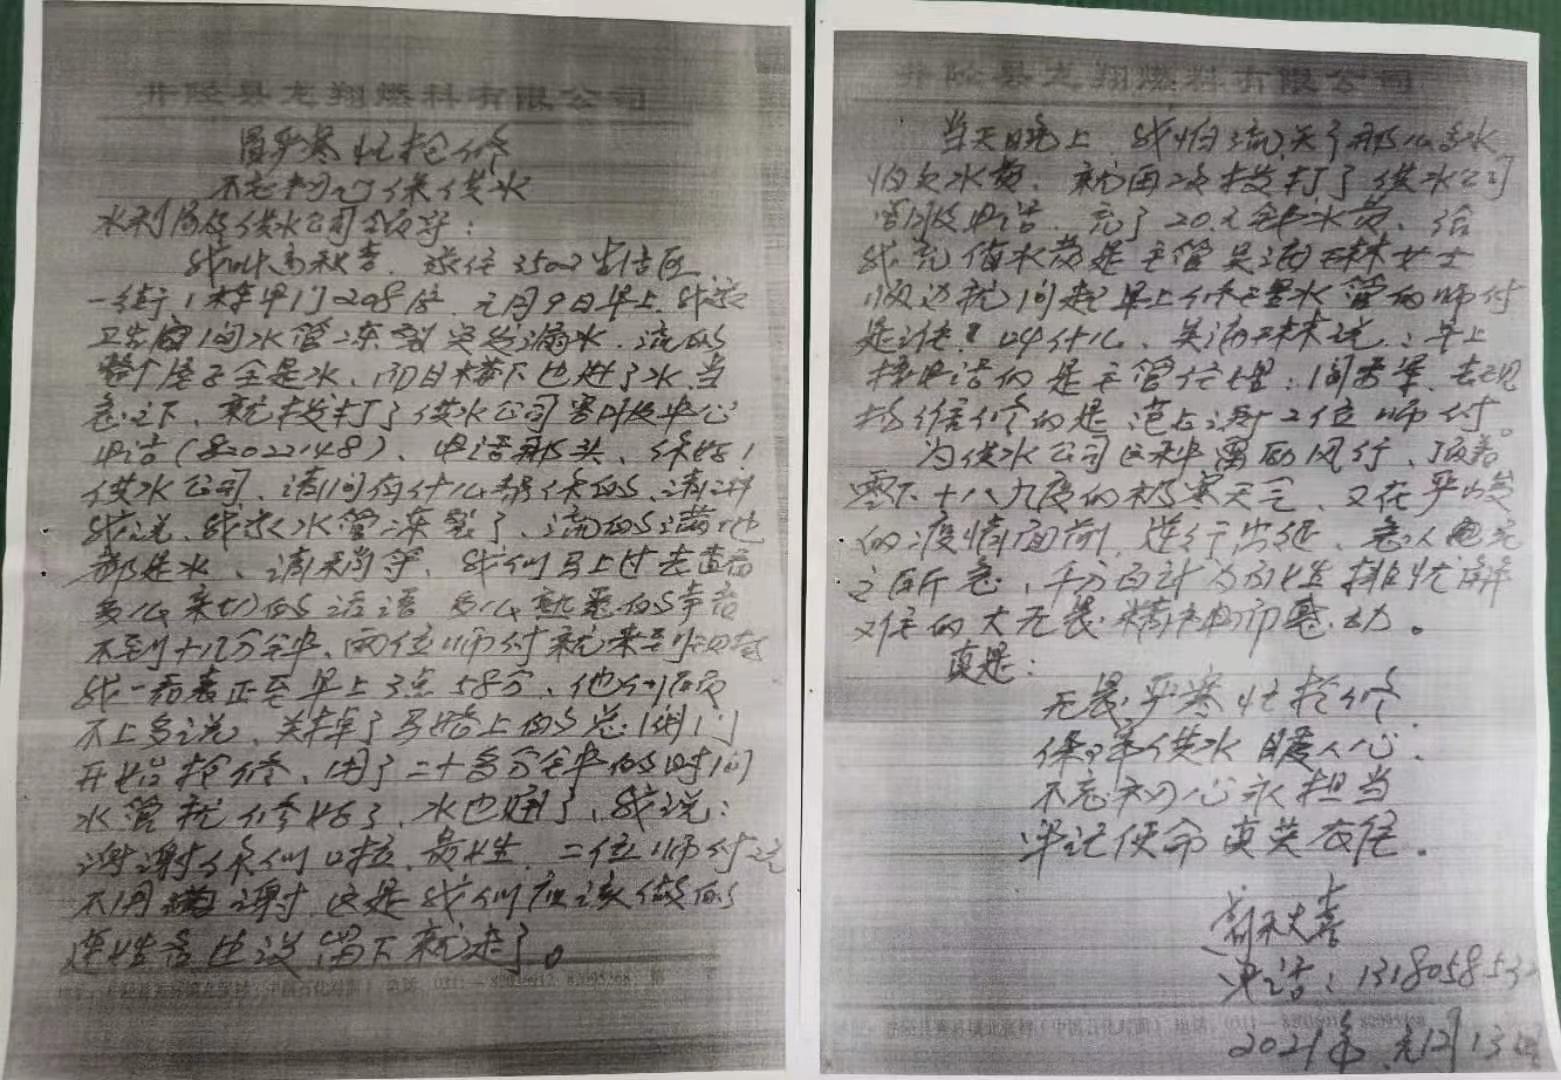 井陉县龙翔燃料有限公司
冒严寒忙抢修
不忘初心保供水
水利局及供水公司领导：
我叫高秋喜，家住3502生活区
一街1栋单门208房，元月9日早上，我家
卫生间水管冻裂突发漏水，流的
整个屋子全是水，而且楼下也进了水，当
急之下，就拨打了供水公司客服中心
电话（82022148），电话那头，你好！
供水公司，请问有什么帮你的，请讲
我说，我家水管冻裂了，流的满地
都是水，请稍等，我们马上过去查看
多么亲切的话语 多么熟悉的声音
不到十几分钟，两位师付就来到
我一看表正至早上3点58分，他们顾
不上多说，关掉了马路上的总阀门
开始抢修，用了二十多分钟的时间
水管就修好了，水也通了，我说：
谢谢你们啦，贵姓，二位师付说
不用谢，这是我们应该做的
连姓名也没留下就走了。
井陉县龙翔燃料有限公司
当天晚上，我怕流失了那么多水
怕欠水费，就再次拨打了供水公司
客服电话，充了20元钱水费，给
我充值水费是主管吴海林女士
顺边就问起早上修理水管的师付
是谁？叫什么，吴海林说：早上
接电话的是主管经理：闫秀军，去现
场维修的是范占涛二位师付。
为供水公司这种雷厉风行，顶着
零下十八九度的极寒天气，又在严峻
的疫情面前，逆行出征，急人
之所急，千方百计为百姓排忧解
难的大无畏精神而感动。
真是：
无畏严寒忙抢修
保障供水暖人心
不忘初心永担当
牢记使命真英杰
高秋喜
电话：131805853
2021年元月13日